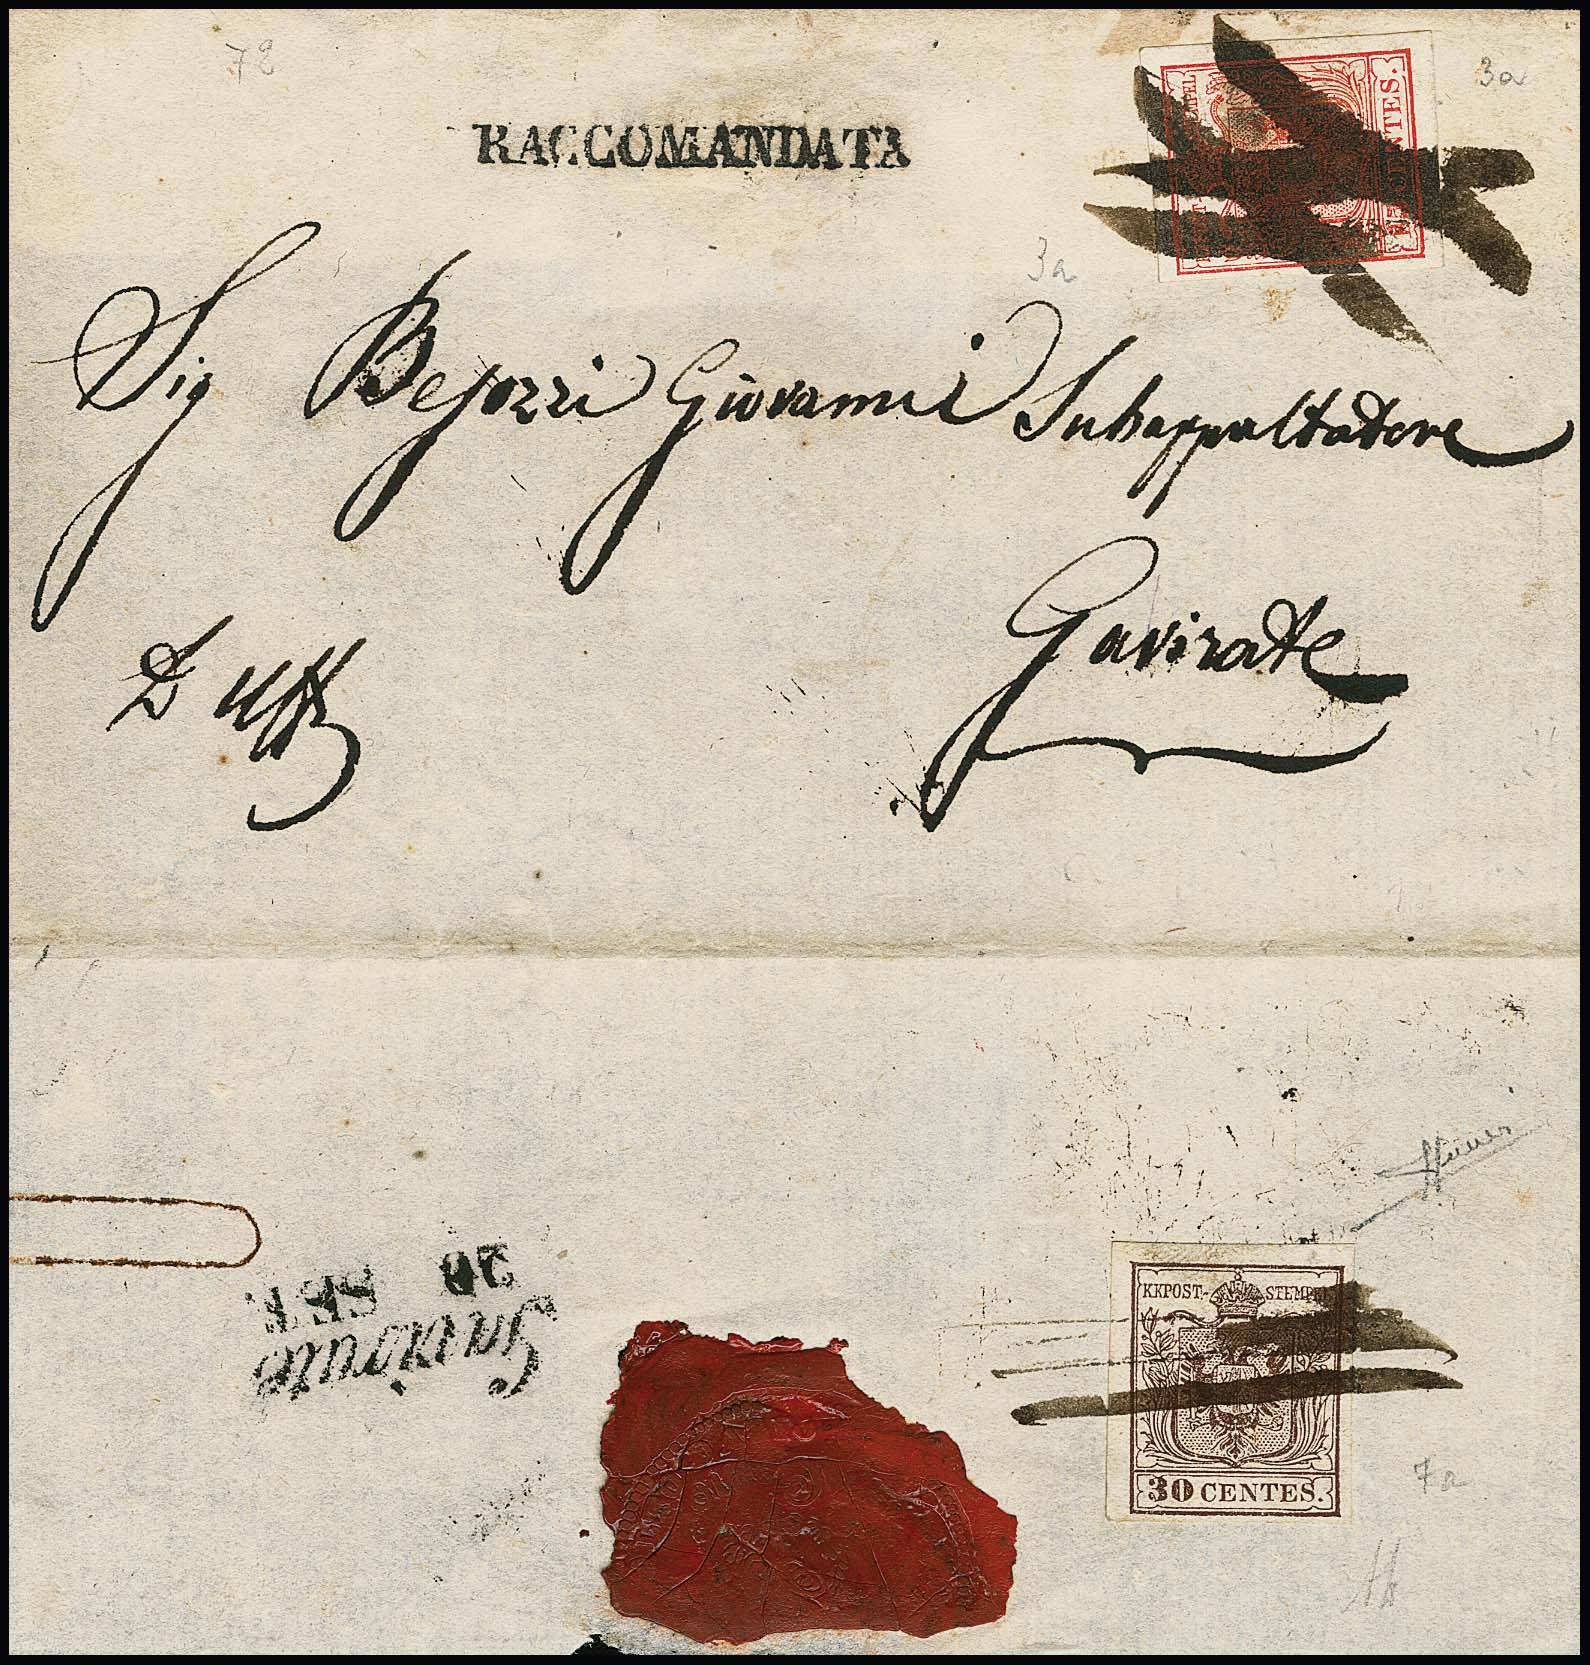 78
3a
RACCOMANDATA
3a
Sig Bejozzi Giovanni Subappaltatore
Gavirate
D Uff
20 SET.
Gavirate
KKPOST-STEMPEL
30 CENTES.
7a